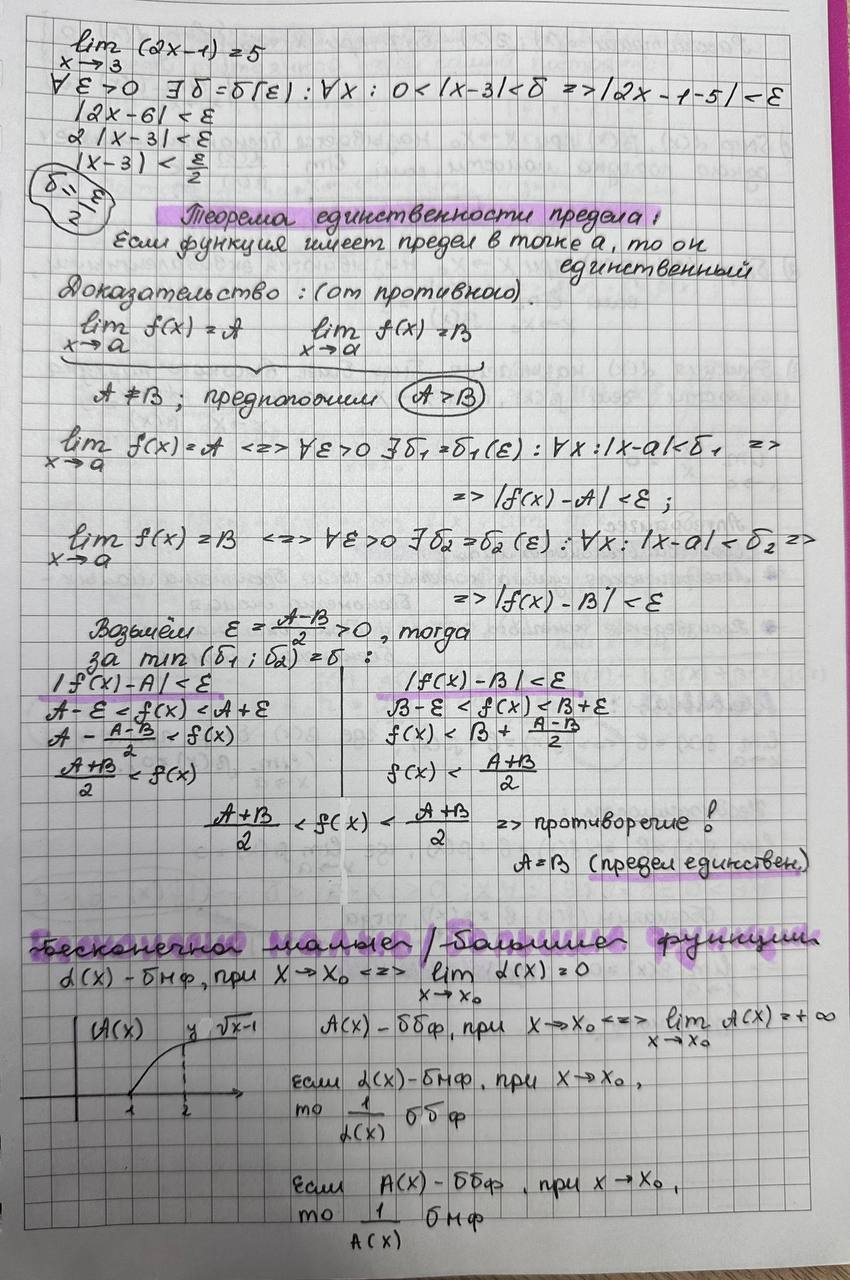 lim (2x-1) = 5
x→3
∀ε>0 ∃δ=δ(ε): ∀x: 0<|x-3|<δ =>|2x-1-5|<ε
|2x-6|<ε
2|x-3|<ε
|x-3|<ε/2
δ=ε/2
Теорема единственности предела:
Если функция имеет предел в точке a, то он
единственный
Доказательство: (от противного).
lim f(x)=A lim f(x)=B
x→a x→a
A≠B; предположим A>B
lim f(x)=A <=> ∀ε>0 ∃δ₁=δ₁(ε): ∀x:|x-a|<δ₁ =>
x→a
=> |f(x)-A|<ε;
lim f(x)=B <=> ∀ε>0 ∃δ₂=δ₂(ε): ∀x: |x-a|<δ₂ =>
x→a
=> |f(x)-B|<ε
Возьмём ε = (A-B)/2 >0, тогда
за min (δ₁; δ₂)=δ:
|f(x)-A|<ε |f(x)-B|<ε
A-ε<f(x)<A+ε B-ε<f(x)<B+ε
A - (A-B)/2 < f(x) f(x) < B + (A-B)/2
(A+B)/2 < f(x) f(x) < (A+B)/2
(A+B)/2 < f(x) < (A+B)/2 => противоречие!
A=B (предел единствен.)
Бесконечно малые/большие функции
α(x) - бмф, при x→x₀ <=> lim α(x)=0
x→x₀
A(x) y √x-1 A(x) - ббф, при x→x₀ <=> lim A(x)=+∞
x→x₀
1 2
Если α(x) - бмф, при x→x₀,
то 1/α(x) ббф
Если A(x) - ббф, при x→x₀,
то 1/A(x) бмф